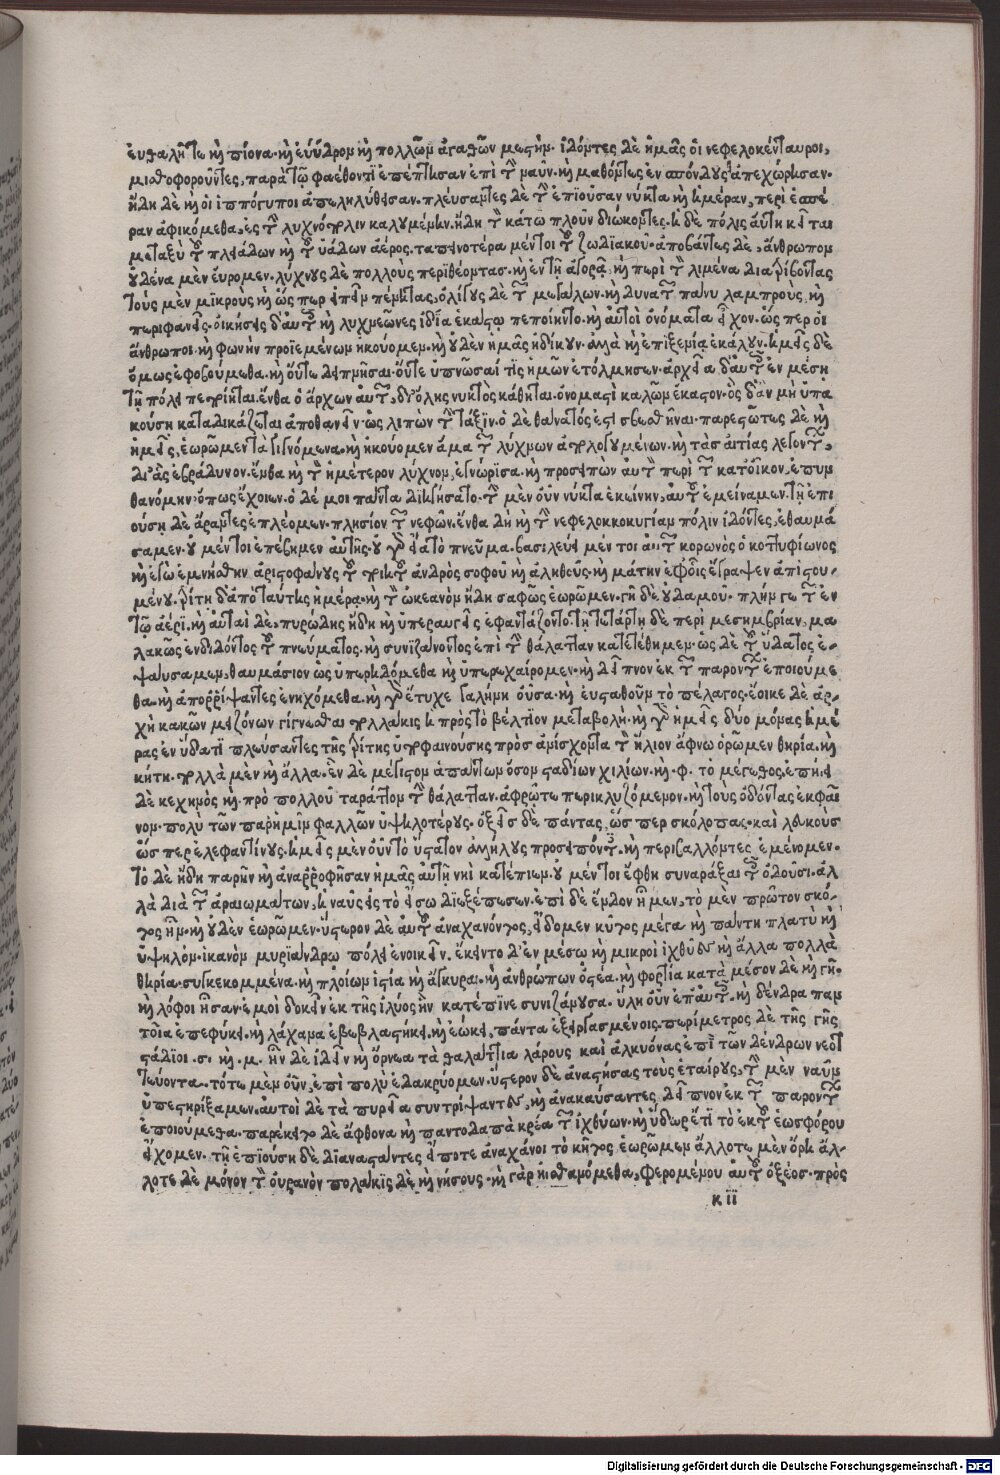 εὐθαλῆ τε καὶ πίονα· καὶ εὔυδρον καὶ πολλῶν ἀγαθῶν μεστὴν· ἰδόντες δὲ ἡμᾶς οἱ νεφελοκένταυροι,
μισθοφοροῦντες, παρὰ τῷ φαέθοντι ἐπέπτησαν ἐπὶ τὴν ναῦν. καὶ μαθόντες ἐνσπόνδους ἀπεχώρησαν·
ἤδη δὲ καὶ οἱ ἱππόγυποι ἀπεληλύθεσαν. πλεύσαντες δὲ τὴν ἐπιοῦσαν νύκτα καὶ ἡμέραν, περὶ ἑσπέ
ραν ἀφικόμεθα, ἐς τὴν λυχνόπολιν καλουμένην. ἤδη τὴν κάτω πλοῦν διώκοντες. ἡ δὲ πόλις αὕτη κεῖται
μεταξὺ τοῦ πλειάδων καὶ τοῦ ὑάδων ἀέρος. ταπεινοτέρα μέντοι τοῦ ζωδιακοῦ· ἀποβάντες δὲ, ἄνθρωπον
οὐδένα μὲν εὕρομεν. λύχνους δὲ πολλοὺς περιθέοντας. καὶ ἐν τῇ ἀγορᾷ, καὶ περὶ τὴν λιμένα διατρίβοντας
τοὺς μὲν μικροὺς καὶ ὥσπερ εἰπεῖν πένητας, ὀλίγους δὲ τῶν μεγάλων. καὶ δυνατῶν πάνυ λαμπροὺς, καὶ
περιφανεῖς. οἰκήσεις δ' αὐτοῖς καὶ λυχνεῶνες ἰδίᾳ ἑκάστῳ πεποίηντο. καὶ αὐτοὶ ὀνόματα εἶχον. ὥσπερ οἱ
ἄνθρωποι. καὶ φωνὴν προϊεμένων ἠκούομεν. καὶ οὐδὲν ἡμᾶς ἠδίκουν. ἀλλὰ καὶ ἐπὶ ξενίᾳ ἐκάλουν. ἡμεῖς δὲ
ὅμως ἐφοβούμεθα. καὶ οὔτε δειπνῆσαι. οὔτε ὑπνῶσαί τις ἡμῶν ἐτόλμησεν. ἀρχεῖα δ' αὐτοῖς ἐν μέσῃ
τῇ πόλει πεποίηται. ἔνθα ὁ ἄρχων αὐτῶν, δι' ὅλης νυκτὸς κάθηται. ὀνομαστὶ καλῶν ἕκαστον. ὃς δ' ἂν μὴ ὑπα
κούσῃ καταδικάζεται ἀποθανεῖν. ὡς λιπὼν τὴν τάξιν. ὁ δὲ θάνατός ἐστι σβεσθῆναι. παρεστῶτες δὲ καὶ
ἡμεῖς, ἑωρῶμεν τὰ γιγνόμενα. καὶ ἠκούομεν ἅμα τῶν λύχνων ἀπολογουμένων. καὶ τὰς αἰτίας λεγόντων,
δι' ἃς ἐβράδυνον. ἔνθα καὶ τὴν ἡμέτερον λύχνον, ἐγνώρισα. καὶ προσειπὼν αὐτὸν περὶ τῶν κατ' οἶκον, ἐπυν
θανόμην· ὅπως ἔχοιεν. ὁ δέ μοι πάντα διηγήσατο. τὴν μὲν οὖν νύκτα ἐκείνην, αὐτοῦ ἐμείναμεν. τῇ ἐπι
ούσῃ δὲ ἄραντες ἐπλέομεν. πλησίον τῶν νεφῶν. ἔνθα δὴ καὶ τὴν νεφελοκοκκυγίαν πόλιν ἰδόντες, ἐθαυμά
σαμεν. οὐ μέντοι ἐπέβημεν αὐτῆς. οὐ γὰρ εἴα τὸ πνεῦμα. βασιλεύει μέν τοι αὐτῶν κορωνὸς ὁ κοττυφίωνος
καὶ ἐγὼ ἐμνήσθην ἀριστοφάνους τοῦ ποιητοῦ ἀνδρὸς σοφοῦ καὶ ἀληθοῦς. καὶ μάτην ἐφ' οἷς ἔγραψεν ἀπιστου-
μένου. τρίτῃ δ' ἀπὸ ταύτης ἡμέρᾳ. καὶ τὴν ὠκεανὸν ἤδη σαφῶς ἑωρῶμεν. γῆ δὲ οὐδαμοῦ. πλήν γε τῶν ἐν
τῷ ἀέρι. καὶ αὗται δὲ, πυρώδης ἤδη καὶ ὑπεραυγεῖς ἐφαντάζοντο. τῇ τετάρτῃ δὲ περὶ μεσημβρίαν, μα
λακῶς ἐνδιδόντος τοῦ πνεύματος. καὶ συνιζάνοντος ἐπὶ τὴν θάλατταν κατετέθημεν. ὡς δὲ τοῦ ὕδατος ἐ-
ψαύσαμεν, θαυμάσιον ὡς ὑπερηδόμεθα καὶ ὑπερεχαίρομεν. καὶ δεῖπνον ἐκ τῶν παρόντων ἐποιούμε
θα. καὶ ἀπορρίψαντες ἐνηχόμεθα. καὶ γὰρ ἔτυχε γαλήνη οὖσα. καὶ εὐσταθοῦν τὸ πέλαγος. ἔοικε δὲ ἀρ-
χὴ κακῶν μειζόνων γίγνεσθαι πολλάκις ἡ πρὸς τὸ βέλτιον μεταβολή. καὶ γὰρ ἡμεῖς, δύο μόνας ἡμέ
ρας ἐν ὕδατι πλεύσαντες τῆς τρίτης ὑποφαινούσης πρὸς ἀνίσχοντα τὴν ἥλιον ἄφνω ὁρῶμεν θηρία. καὶ
κήτη. πολλὰ μὲν καὶ ἄλλα. ἓν δὲ μέγιστον ἁπάντων ὅσον σταδίων χιλίων. καὶ .φ. τὸ μέγεθος. ἐπῄει
δὲ κεχηνὸς καὶ. πρὸ πολλοῦ ταράττον τὴν θάλατταν. ἀφρῷ τε περικλυζόμενον. καὶ τοὺς ὀδόντας ἐκφαῖ
νον. πολὺ τῶν παρ' ἡμῖν φαλλῶν ὑψηλοτέρους. ὀξεῖς δὲ πάντας, ὥσπερ σκόλοπας. καὶ λευκοὺς
ὥσπερ ἐλεφαντίνους. ἡμεῖς μὲν οὖν τὸ ὕστατον ἀλλήλους προσειπόντες. καὶ περιβαλλόντες ἐμένομεν.
τὸ δὲ ἤδη παρῆν καὶ ἀναρροφῆσαν ἡμᾶς αὐτῇ νηὶ κατέπιεν. οὐ μέντοι ἔφθη συναράξαι τοῖς ὀδοῦσι. ἀλ
λὰ διὰ τῶν ἀραιωμάτων, ἡ ναῦς ἐς τὸ εἴσω διεξέπεσεν. ἐπεὶ δὲ ἔνδον ἦμεν, τὸ μὲν πρῶτον σκό-
τος ἦν. καὶ οὐδὲν ἑωρῶμεν. ὕστερον δὲ αὐτοῦ ἀναχανόντος, εἴδομεν κύτος μέγα καὶ πάντη πλατὺ καὶ
ὑψηλὸν. ἱκανὸν μυριάνδρῳ πόλει ἐνοικεῖν. ἔκειντο δ' ἐν μέσῳ καὶ μικροὶ ἰχθύες καὶ ἄλλα πολλὰ
θηρία. συγκεκομμένα. καὶ πλοίων ἱστία καὶ ἄγκυραι. καὶ ἀνθρώπων ὀστέα. καὶ φορτία κατὰ μέσον δὲ καὶ γῆ.
καὶ λόφοι ἦσαν. ἐμοὶ δοκεῖν ἐκ τῆς ἰλύος ἣν κατέπινε συνιζάνουσα. ὕλη οὖν ἐπ' αὐτῆς. καὶ δένδρα παν
τοῖα ἐπεφύκει. καὶ λάχανα ἐβεβλαστήκει. καὶ ἐῴκει, πάντα ἐξειργασμένοις. περίμετρος δὲ τῆς γῆς
στάδιοι .σ. καὶ .μ. ἦν δὲ ἰδεῖν καὶ ὄρνεα τὰ θαλάττια λάρους καὶ ἀλκυόνας ἐπὶ τῶν δένδρων νεοτ
τεύοντα. τότε μὲν οὖν, ἐπὶ πολὺ ἐδακρύομεν. ὕστερον δὲ ἀναστήσας τοὺς ἑταίρους, τὴν μὲν ναῦν
ὑπεστηρίξαμεν. αὐτοὶ δὲ τὰ πυρεῖα συντρίψαντες, καὶ ἀνακαύσαντες, δεῖπνον ἐκ τῶν παρόντων
ἐποιούμεθα. παρέκειτο δὲ ἄφθονα καὶ παντοδαπὰ κρέα τῶν ἰχθύων. καὶ ὕδωρ ἔτι τὸ ἐκ τοῦ ἑωσφόρου
εἴχομεν. τῇ ἐπιούσῃ δὲ διαναστάντες εἴ ποτε ἀναχάνοι τὸ κῆτος ἑωρῶμεν ἄλλοτε μὲν ὄρη ἄλ-
λοτε δὲ μόνον τὴν οὐρανὸν πολλάκις δὲ καὶ νήσους. καὶ γὰρ ᾐσθανόμεθα, φερομένου αὐτοῦ ὀξέος. πρὸς
κ ii
Digitalisierung gefördert durch die Deutsche Forschungsgemeinschaft - DFG